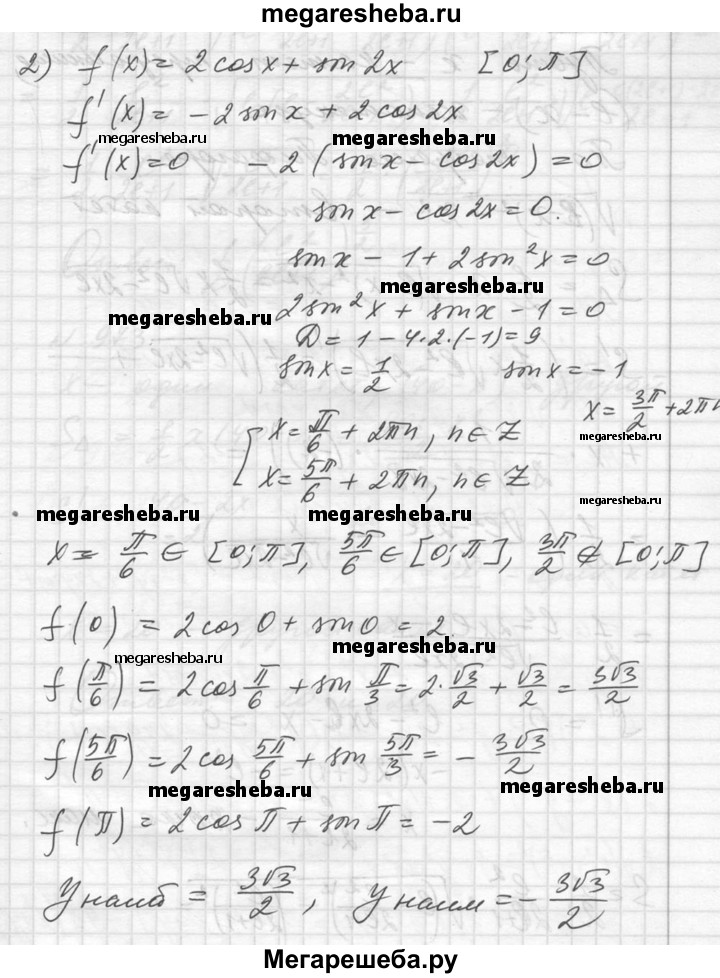 megaresheba.ru
2) f(x) = 2cosx + sin2x [0; π]
f'(x) = -2sinx + 2cos2x
megaresheba.ru megaresheba.ru
f'(x)=0 -2(sinx - cos2x) = 0
sinx - cos2x = 0.
sinx - 1 + 2sin²x = 0
megaresheba.ru
2sin²x + sinx - 1 = 0
megaresheba.ru
D = 1 - 4·2·(-1) = 9
sinx = 1/2 sinx = -1
x = 3π/2 + 2πn
megaresheba.ru
[ x = π/6 + 2πn, n ∈ Z
x = 5π/6 + 2πn, n ∈ Z
megaresheba.ru
megaresheba.ru megaresheba.ru
x = π/6 ∈ [0; π], 5π/6 ∈ [0; π], 3π/2 ∉ [0; π]
f(0) = 2cos0 + sin0 = 2
megaresheba.ru megaresheba.ru
f(π/6) = 2cos π/6 + sin π/3 = 2·√3/2 + √3/2 = 3√3/2
f(5π/6) = 2cos 5π/6 + sin 5π/3 = - 3√3/2
megaresheba.ru megaresheba.ru
f(π) = 2cosπ + sinπ = -2
Унаиб = 3√3/2, Унаим = - 3√3/2
Мегарешеба.ру